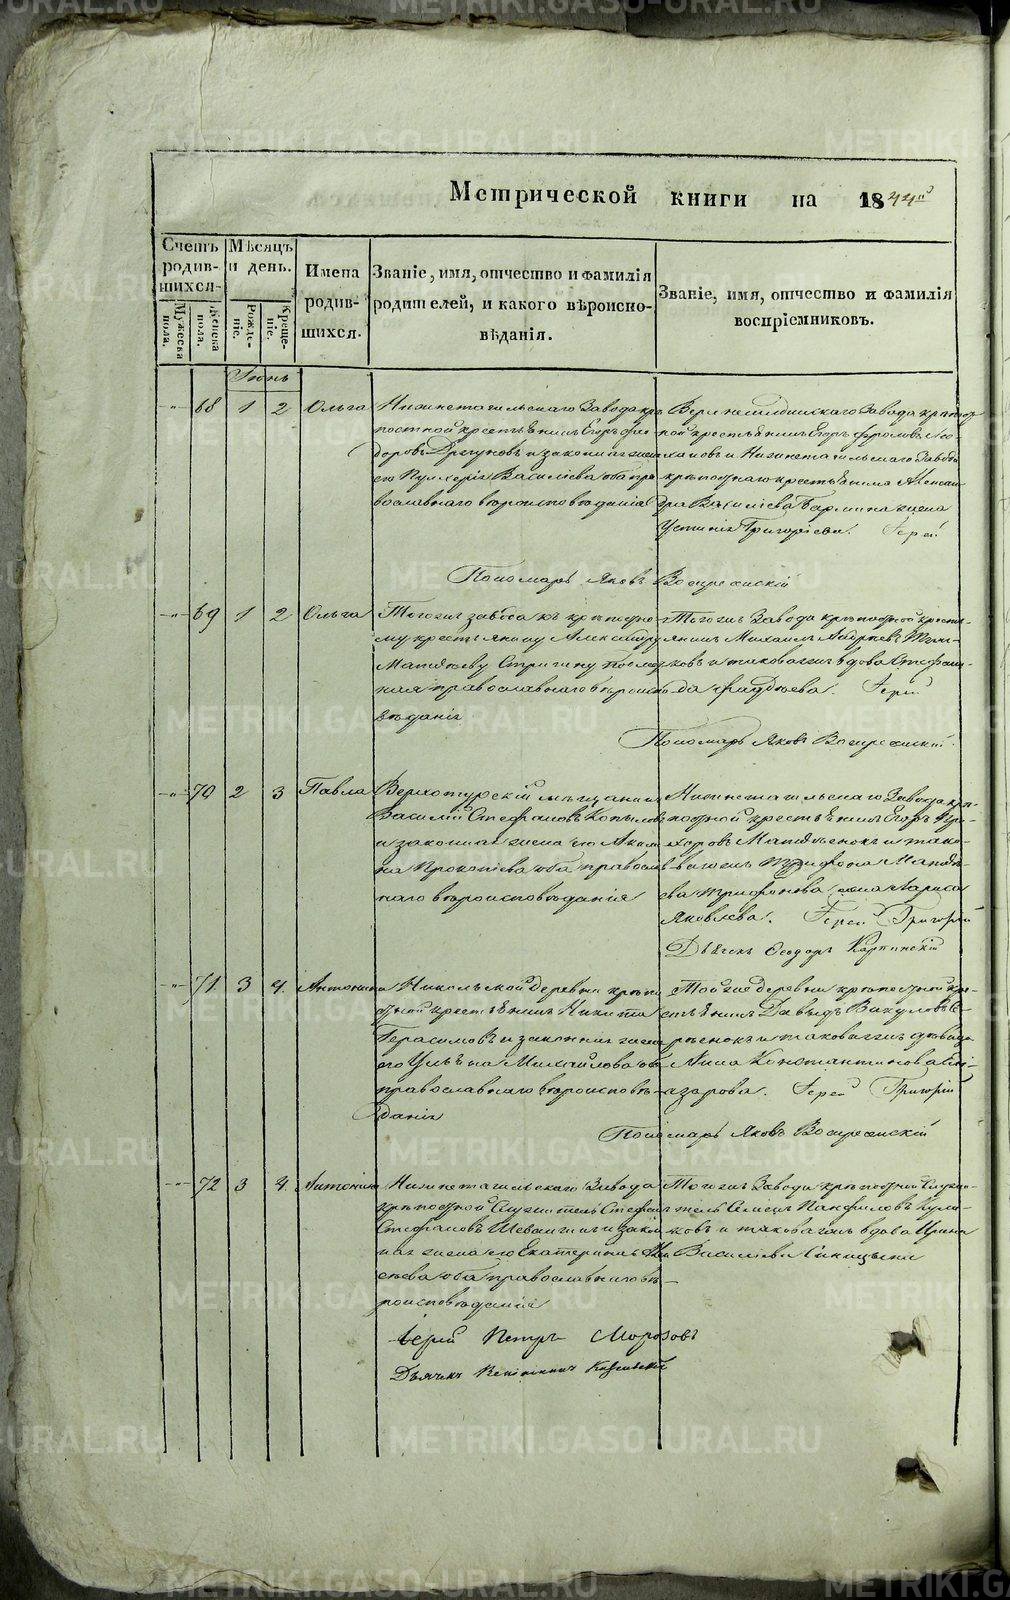 Метрической книги на 1844й
Счетъ родив- шихся.
Мѣсяцъ и день.
Имена родив- шихся.
Званіе, имя, отчество и фамилія родителей, и какого вѣроиспо- вѣданія.
Званіе, имя, отчество и фамилія воспріемниковъ.
Мужеска пола.
Женска пола.
Рожде- ніе.
Креще- ніе.
Іюнь
68 1 2 Ольга
Нижнетагильскаго Завода крѣ-
постной крестьянинъ Егоръ Фео-
доровъ и законная жена
его Пулхерія Васильева оба пра-
вославнаго вѣроисповѣданія
Завода крѣпост-
ной крестьянинъ Егоръ Фроловъ
и Нижнетагильскаго Завода
крѣпостнаго крестьянина Алексан-
дра Васильева жена
Устинія Григорьева. Іерей
Пономарь Яковъ Воскресенскій
69 1 2 Ольга
Тогожъ завода къ крѣпостно-
му крестьянину Александру
Матвѣеву Стригину
православнаго вѣроиспо-
вѣданія
Тогожъ Завода крѣпостной кресть-
янинъ Михаилъ Андреевъ
и таковаяжъ вдова Стефани-
да Фаддѣева. Іерей
Пономарь Яковъ Воскресенскій.
70 2 3 Павла
Верхотурскій мѣщанинъ
Василій Стефановъ Копыловъ
и законная жена его Акили-
на Прокопьева оба православ-
наго вѣроисповѣданія
Нижнетагильскаго Завода крѣ-
постной крестьянинъ Егоръ
и тако-
вагожъ Трифона Матвѣ-
ева Трифонова жена Лариса
Яковлева. Іерей Григорій
Дьячекъ Феодоръ Карпинскій
71 3 4 Антонина
Никольской деревни крѣпо-
стной крестьянинъ Никита
Герасимовъ и законная жена
его Ульяна Михайлова оба
православнаго вѣроисповѣ-
данія
Тойже деревни крѣпостной кре-
стьянинъ Давыдъ Викуловъ
и таковаяжъ дѣвица
Анна Константинова
Іерей Григорій
Пономарь Яковъ Воскресенскій
72 3 4 Антонина
Нижнетагильскаго Завода
крѣпостной Служитель Стефанъ
Стефановъ и закон-
ная жена его Екатерина
оба православнаго вѣ-
роисповѣданія
Тогожъ Завода крѣпостной Служи-
тель Семенъ Панфиловъ Кули-
ковъ и таковаяжъ вдова Ирина
Васильева Синицына
Іерей Петръ Морозовъ
Дьячекъ
METRIKI.GASO-URAL.RU